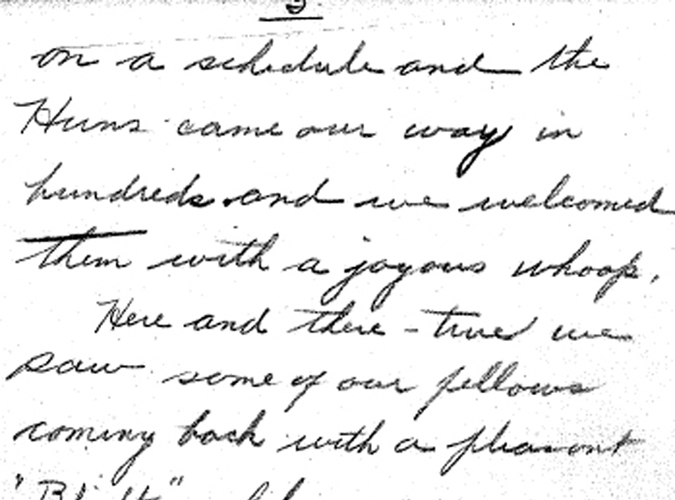 on a schedule and the
Huns came our way in
hundreds and we welcomed
them with a joyous whoop.
Here and there - true we
saw some of our fellows
coming back with a pleasant